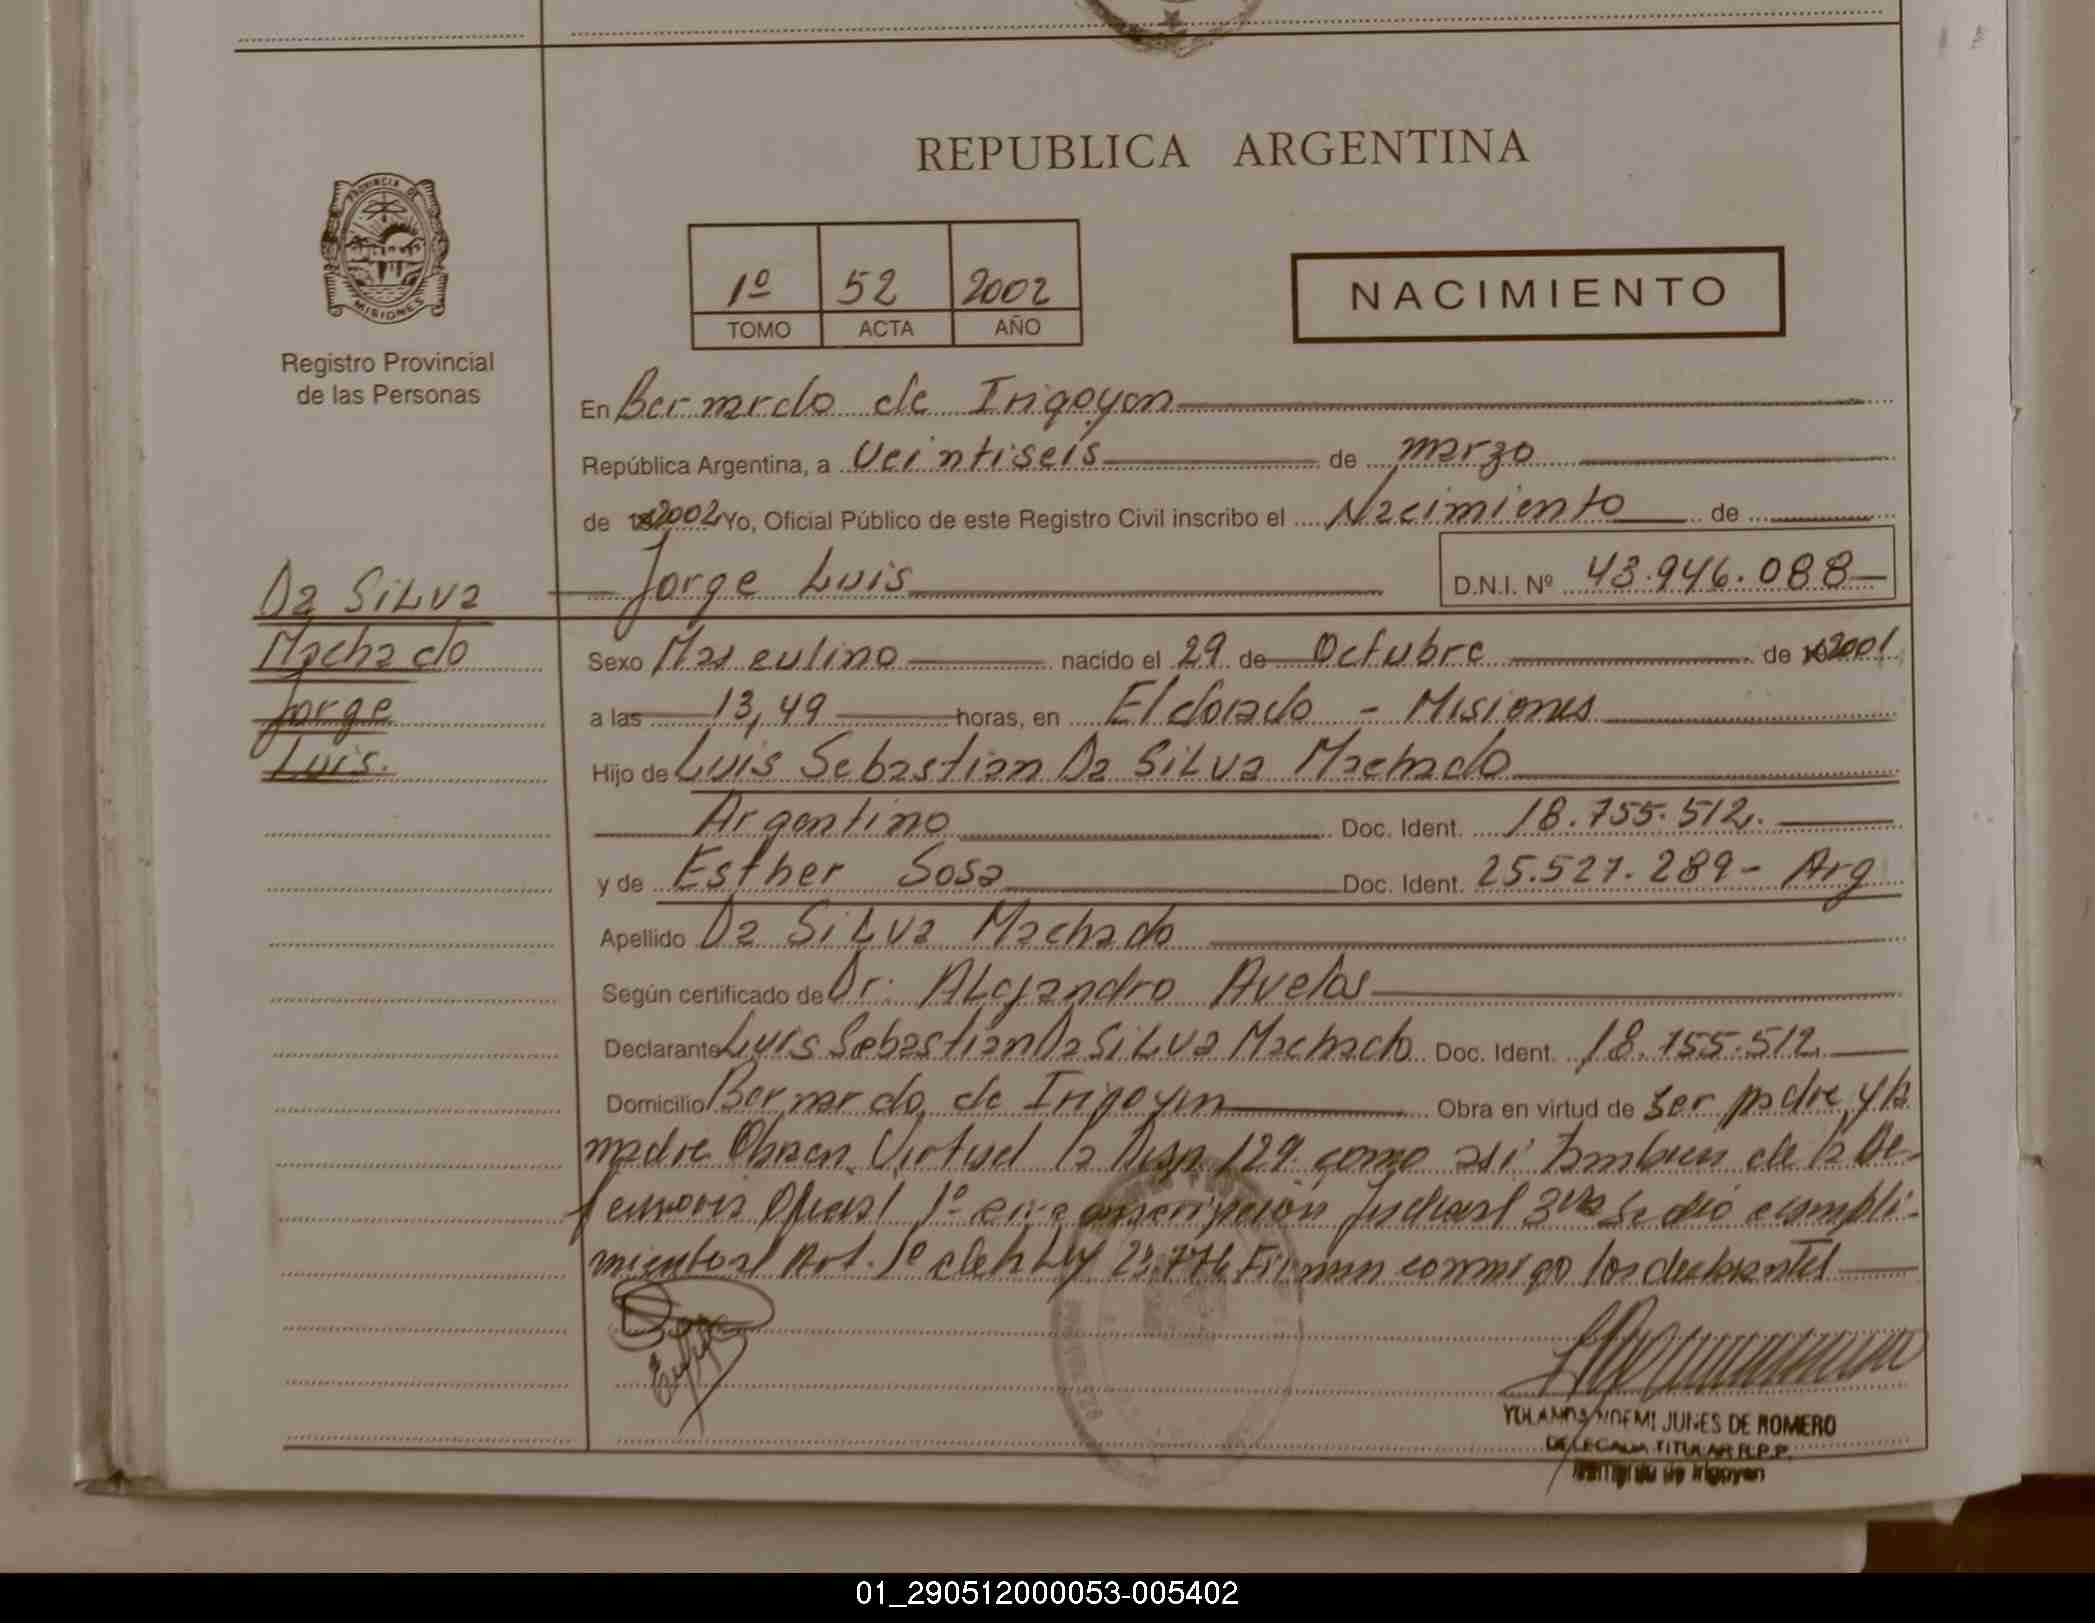 REPUBLICA ARGENTINA
PROVINCIA DE
MISIONES
Registro Provincial
de las Personas
1º 52 2002
TOMO ACTA AÑO
NACIMIENTO
En Bernardo de Irigoyen
República Argentina, a Veintiseis de marzo
de 2002 Yo, Oficial Público de este Registro Civil inscribo el Nacimiento de
Jorge Luis D.N.I. Nº 43.946.088
Da SiLva
Machado
Jorge
Luis.
Sexo Masculino nacido el 29 de Octubre de 2001
a las 13,49 horas, en Eldorado - Misiones
Hijo de Luis Sebastian Da SiLva Machado
Argentino Doc. Ident. 18.755.512.
y de Esther Sosa Doc. Ident. 25.527.289- Arg
Apellido Da SiLva Machado
Según certificado de Dr. ALejandro Avelos
Declarante Luis Sebastian Da SiLva Machado Doc. Ident. 18.755.512
Domicilio Bernardo de Irigoyen Obra en virtud de ser padre y la
madre Obra en Virtud la Disp 129 como asi tambien de la De-
fensoria Oficial 1º circunscripción Judicial 3ra Se dió cumpli-
miento al Art. 1º de la Ley 23.776 Firman conmigo los declarantes
YOLANDA NOEMI JUNES DE ROMERO
DELEGADA TITULAR R.P.P.
Bernardo de Irigoyen
01_290512000053-005402